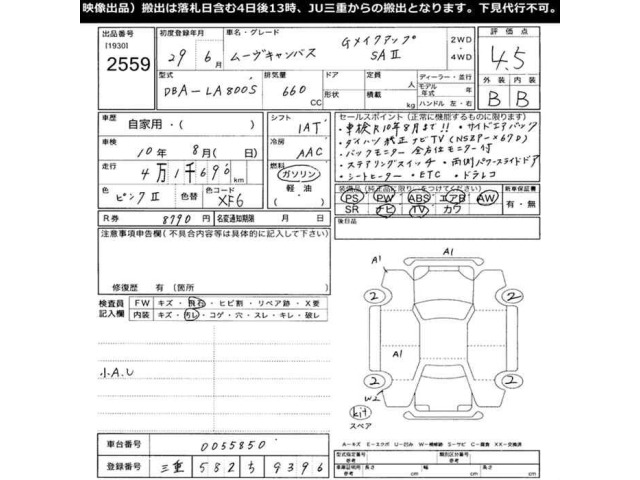 映像出品）搬出は落札日含む4日後13時、JU三重からの搬出となります。下見代行不可。
出品番号 初度登録年月 車名・グレード 評価点
[1930]
2559
29年6月 ムーヴキャンバス GメイクアップSAⅡ 2WD・4WD 4.5
型式 排気量 ドア 定員 ディーラー・並行 外装 内装
DBA-LA800S 660 CC 形状 積載 kg モデル年式 年 ハンドル 左・右 B B
車歴 自家用・( ) シフト 1AT
車検 10年 8月(日) 冷房 AAC
走行 4万1千690km 燃料 ガソリン 軽油 ( )
色 ピンクⅡ 色替 色コード XF6
R券 8790円 名変通知期限 月 日
セールスポイント (正常に機能するものに限ります)
・車検R10年8月まで!! ・サイドエアバッグ
・ダイハツ純正ナビTV(NSZP-X67D)
・バックモニター 全方位モニター付
・ステアリングスイッチ ・両側パワースライドドア
・シートヒーター ・ETC ・ドラレコ
装備品 (純正品に限り○をつけてください) 新車保証書
PS PW ABS エアB AW 有・無
SR ナビ TV カワ
後日品
注意事項申告欄 (不具合内容等は具体的に記入して下さい)
修復歴 有 (箇所 )
検査員記入欄 FW キズ・飛石・ヒビ割・リペア跡・X要
内装 キズ・汚レ・コゲ・穴・スレ・キレ・破レ
小A.U
A1
A1
2 2
A1
2 2
W2
kit
スペア
A-キズ E-エクボ U-凹み W-補修跡 S-サビ C-腐食 XX-交換済
車台番号 0055850
登録番号 三重 582 ち 9396
型式指定番号 参考 類別区分番号 参考
車庫証明用 参考 長さ cm 幅 cm 高さ cm